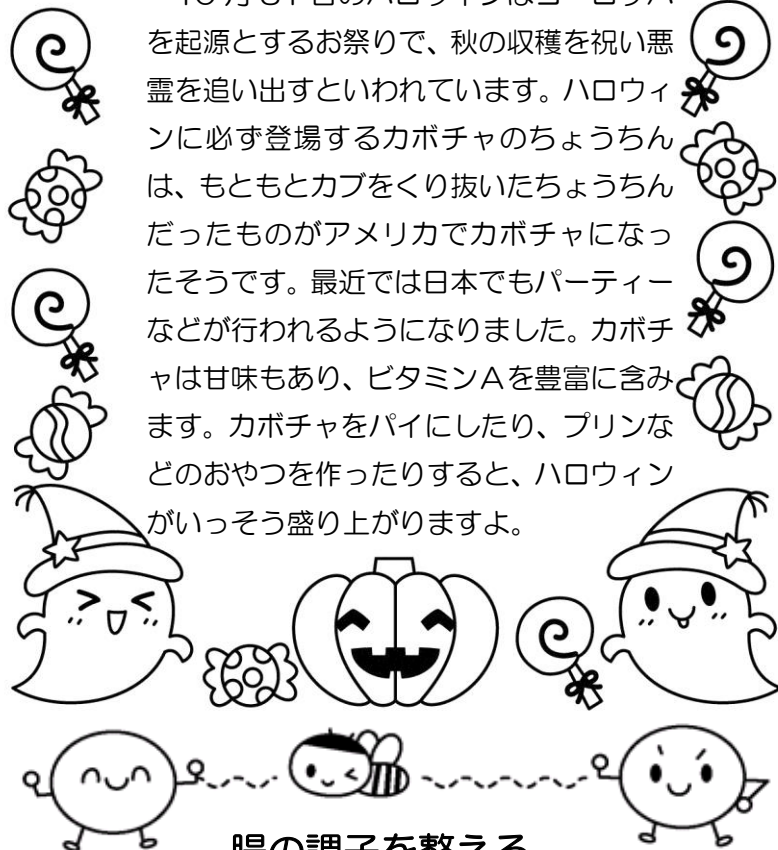 10月31日のハロウィンはヨーロッパ
を起源とするお祭りで、秋の収穫を祝い悪
霊を追い出すといわれています。ハロウィ
ンに必ず登場するカボチャのちょうちん
は、もともとカブをくり抜いたちょうちん
だったものがアメリカでカボチャになっ
たそうです。最近では日本でもパーティー
などが行われるようになりました。カボチ
ャは甘味もあり、ビタミンAを豊富に含み
ます。カボチャをパイにしたり、プリンな
どのおやつを作ったりすると、ハロウィン
がいっそう盛り上がりますよ。
腸の調子を整える